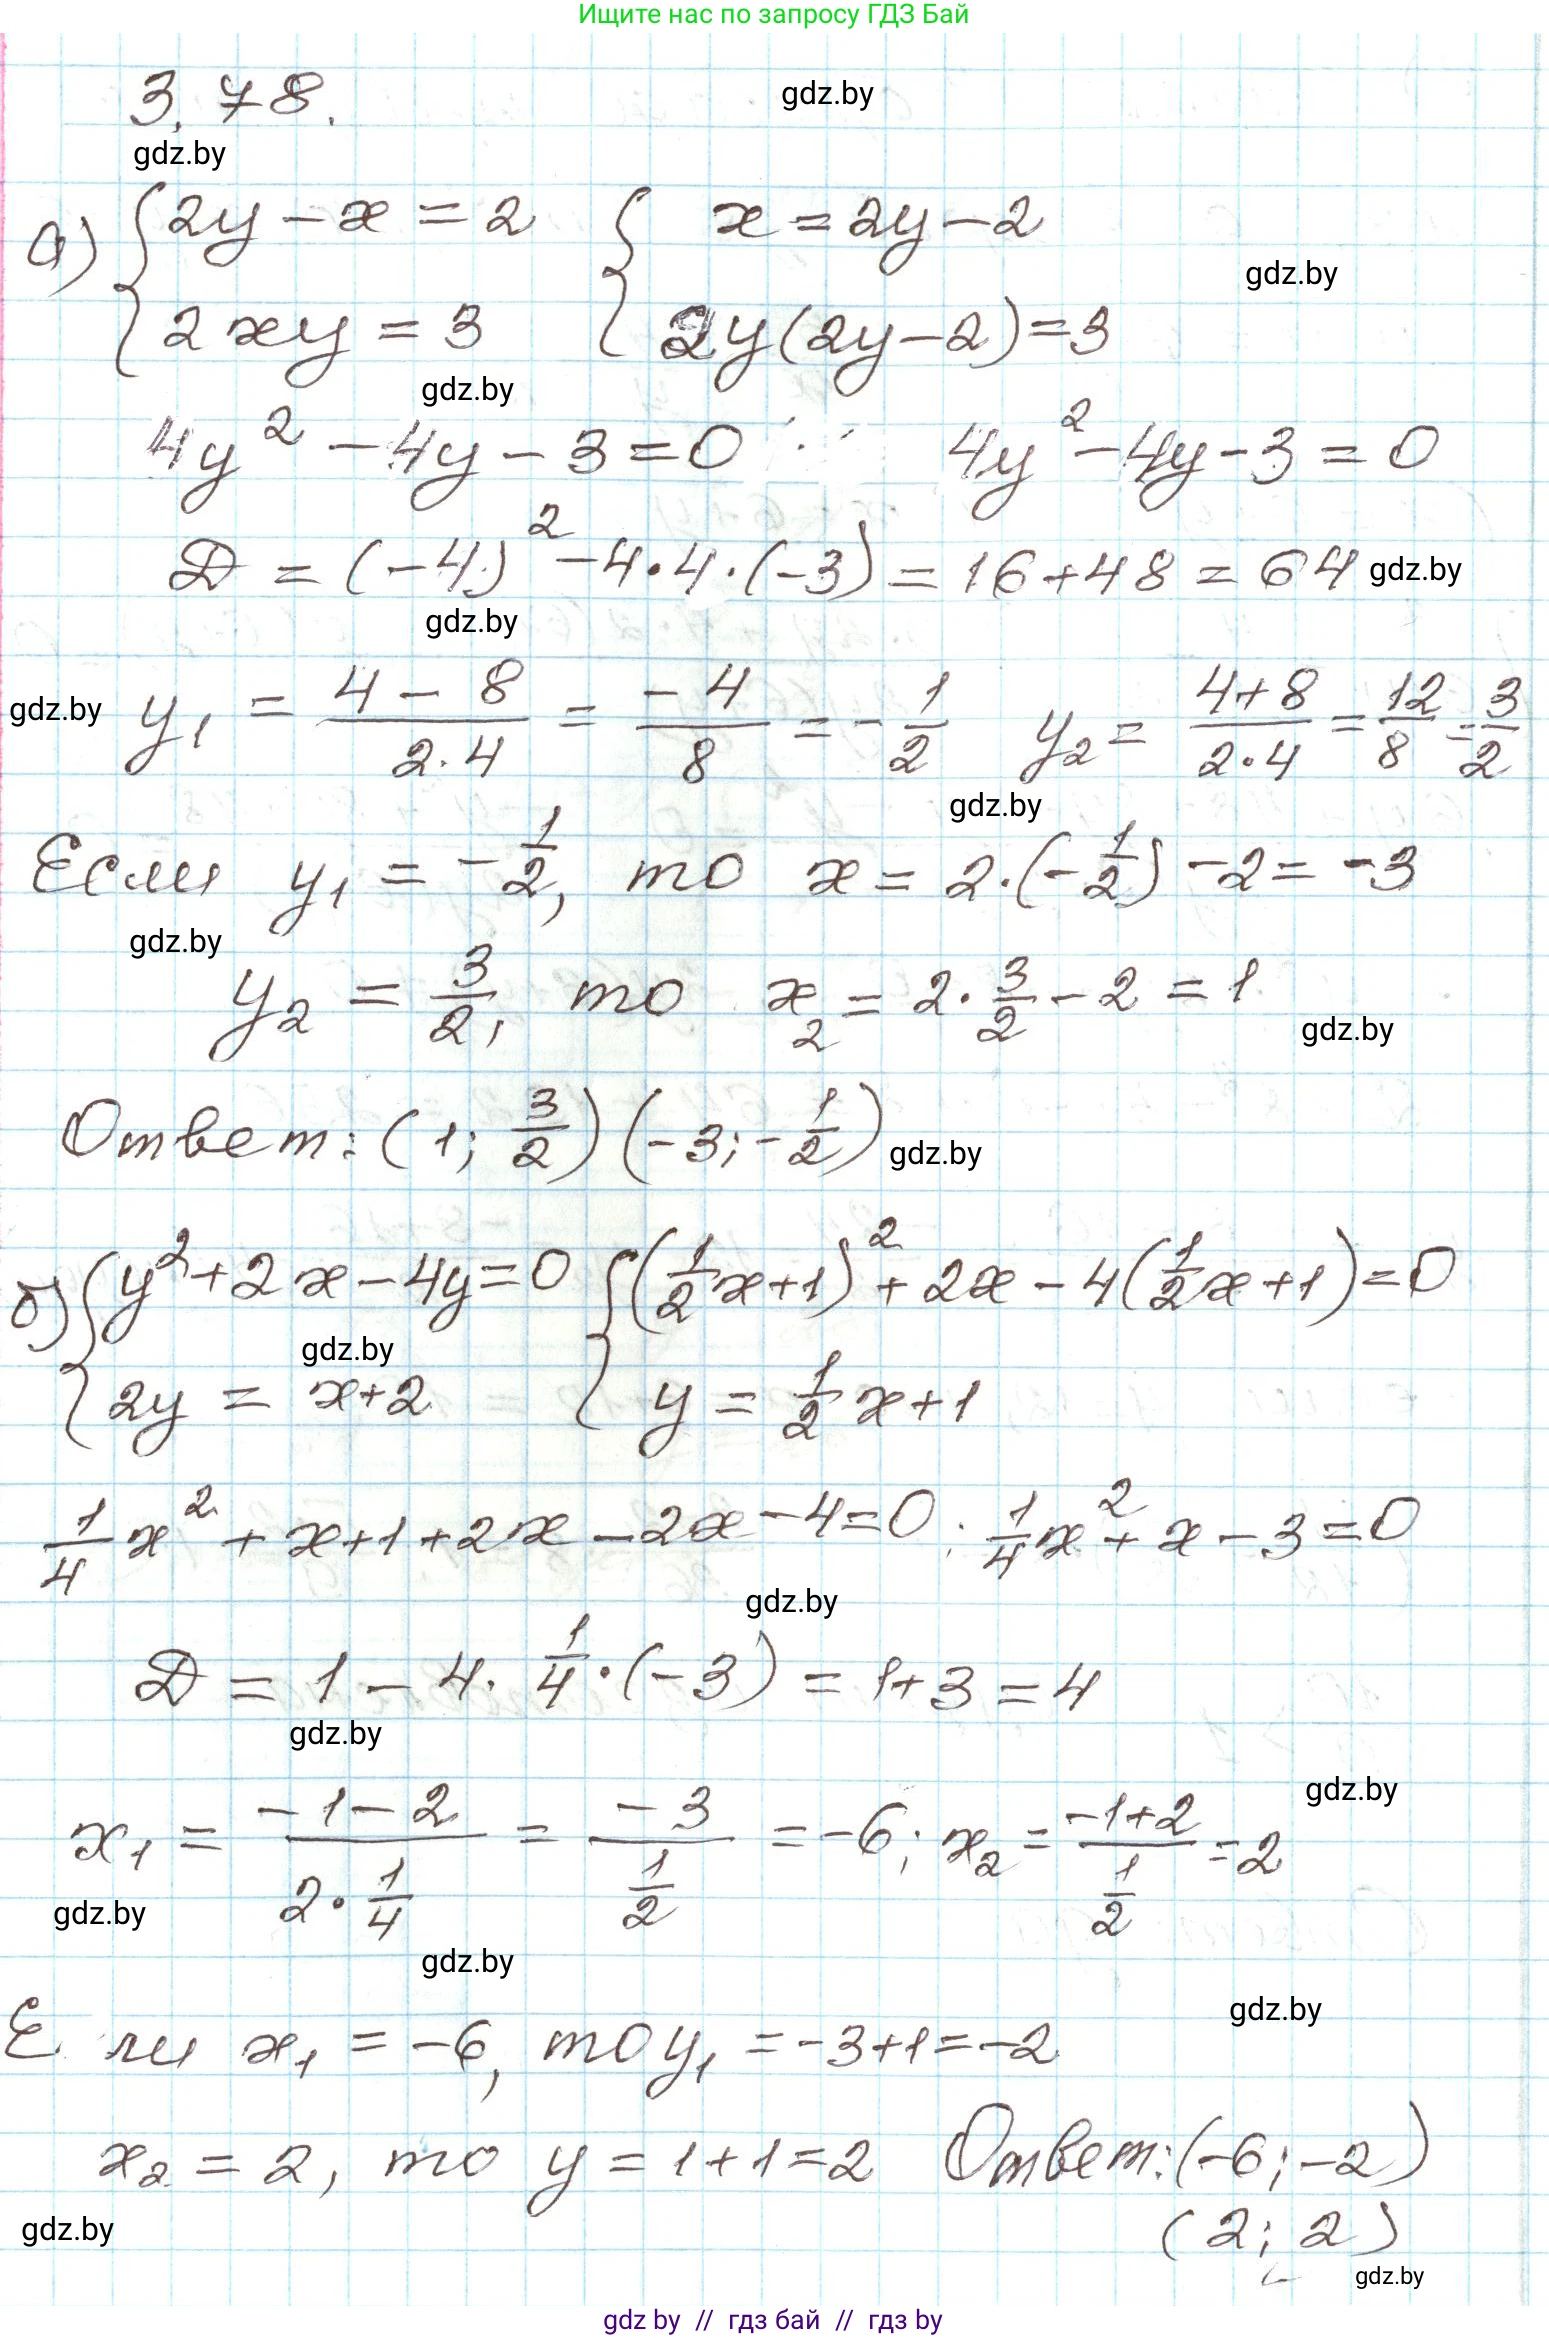 Ищите нас по запросу ГДЗ Бай
3.78.
gdz.by
gdz.by
а) { 2y - x = 2 { x = 2y - 2
gdz.by
2xy = 3 2y(2y - 2) = 3
gdz.by
4y² - 4y - 3 = 0 4y² - 4y - 3 = 0
D = (-4)² - 4·4·(-3) = 16 + 48 = 64 gdz.by
gdz.by
gdz.by y₁ = (4 - 8)/(2·4) = -4/8 = -1/2 y₂ = (4 + 8)/(2·4) = 12/8 = 3/2
gdz.by
Если y₁ = -1/2, то x = 2·(-1/2) - 2 = -3
gdz.by
y₂ = 3/2, то x₂ = 2·3/2 - 2 = 1
gdz.by
Ответ: (1; 3/2) (-3; -1/2) gdz.by
б) { y² + 2x - 4y = 0 { (1/2x + 1)² + 2x - 4(1/2x + 1) = 0
gdz.by
2y = x + 2 y = 1/2x + 1
1/4x² + x + 1 + 2x - 2x - 4 = 0 ; 1/4x² + x - 3 = 0
gdz.by
D = 1 - 4·1/4·(-3) = 1 + 3 = 4
gdz.by
gdz.by
x₁ = (-1 - 2)/(2·1/4) = -3/(1/2) = -6; x₂ = (-1 + 2)/(1/2) = 2
gdz.by
gdz.by
gdz.by
Е ли x₁ = -6, то y₁ = -3 + 1 = -2
x₂ = 2, то y = 1 + 1 = 2 Ответ: (-6; -2)
gdz.by (2; 2)
gdz.by
gdz by // гдз бай // гдз by